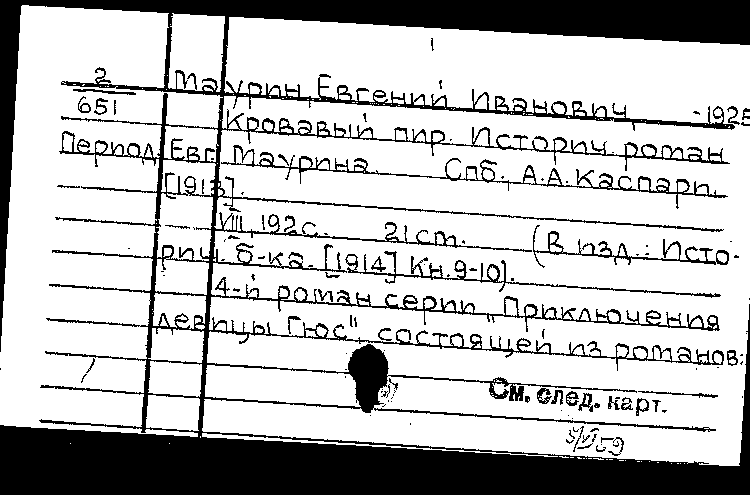 2
651
Маурин, Евгений Иванович, -1925
Кровавый пир. Историч. роман
Период. Евг. Маурина. Спб., А.А. Каспари,
[1913].
VIII, 192 с. 21 ст. (В изд.: Исто-
рич. б-ка. [1914] Кн. 9-10).
4-й роман серии „Приключения
девицы Гюс", состоящей из романов:
См. след. карт.
5/VI 59